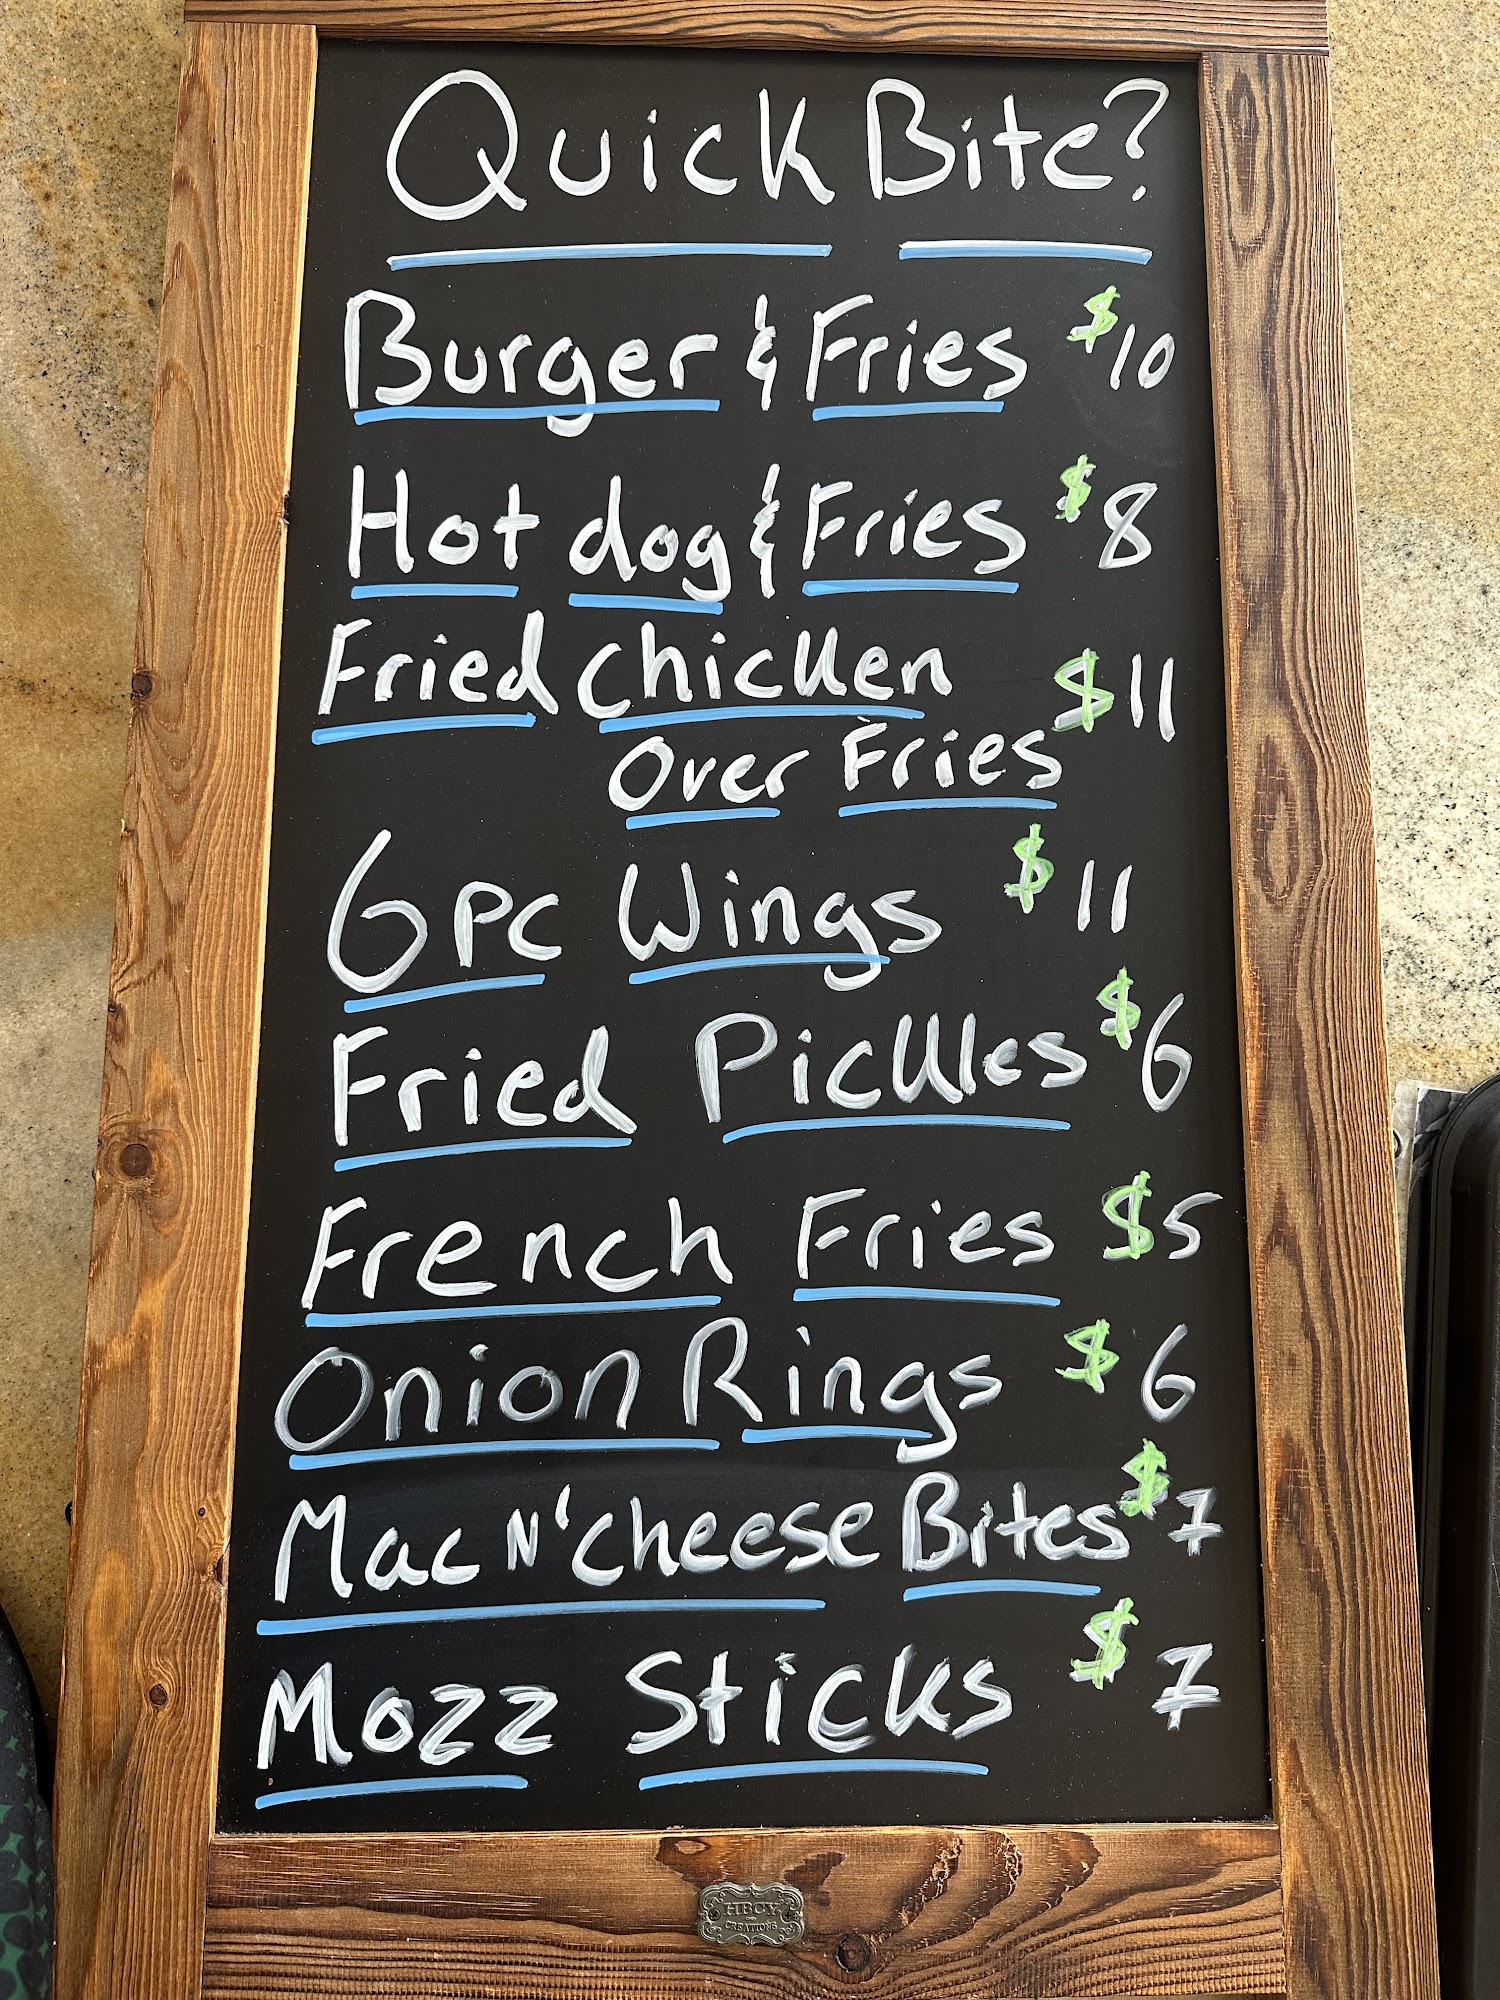 Quick Bite?
Burger & Fries $10
Hot dog & Fries $8
Fried chicken $11
Over Fries
6 pc Wings $11
Fried Pickles $6
French Fries $5
Onion Rings $6
Mac N' cheese Bites $7
Mozz Sticks $7
HBCY
CREATIONS